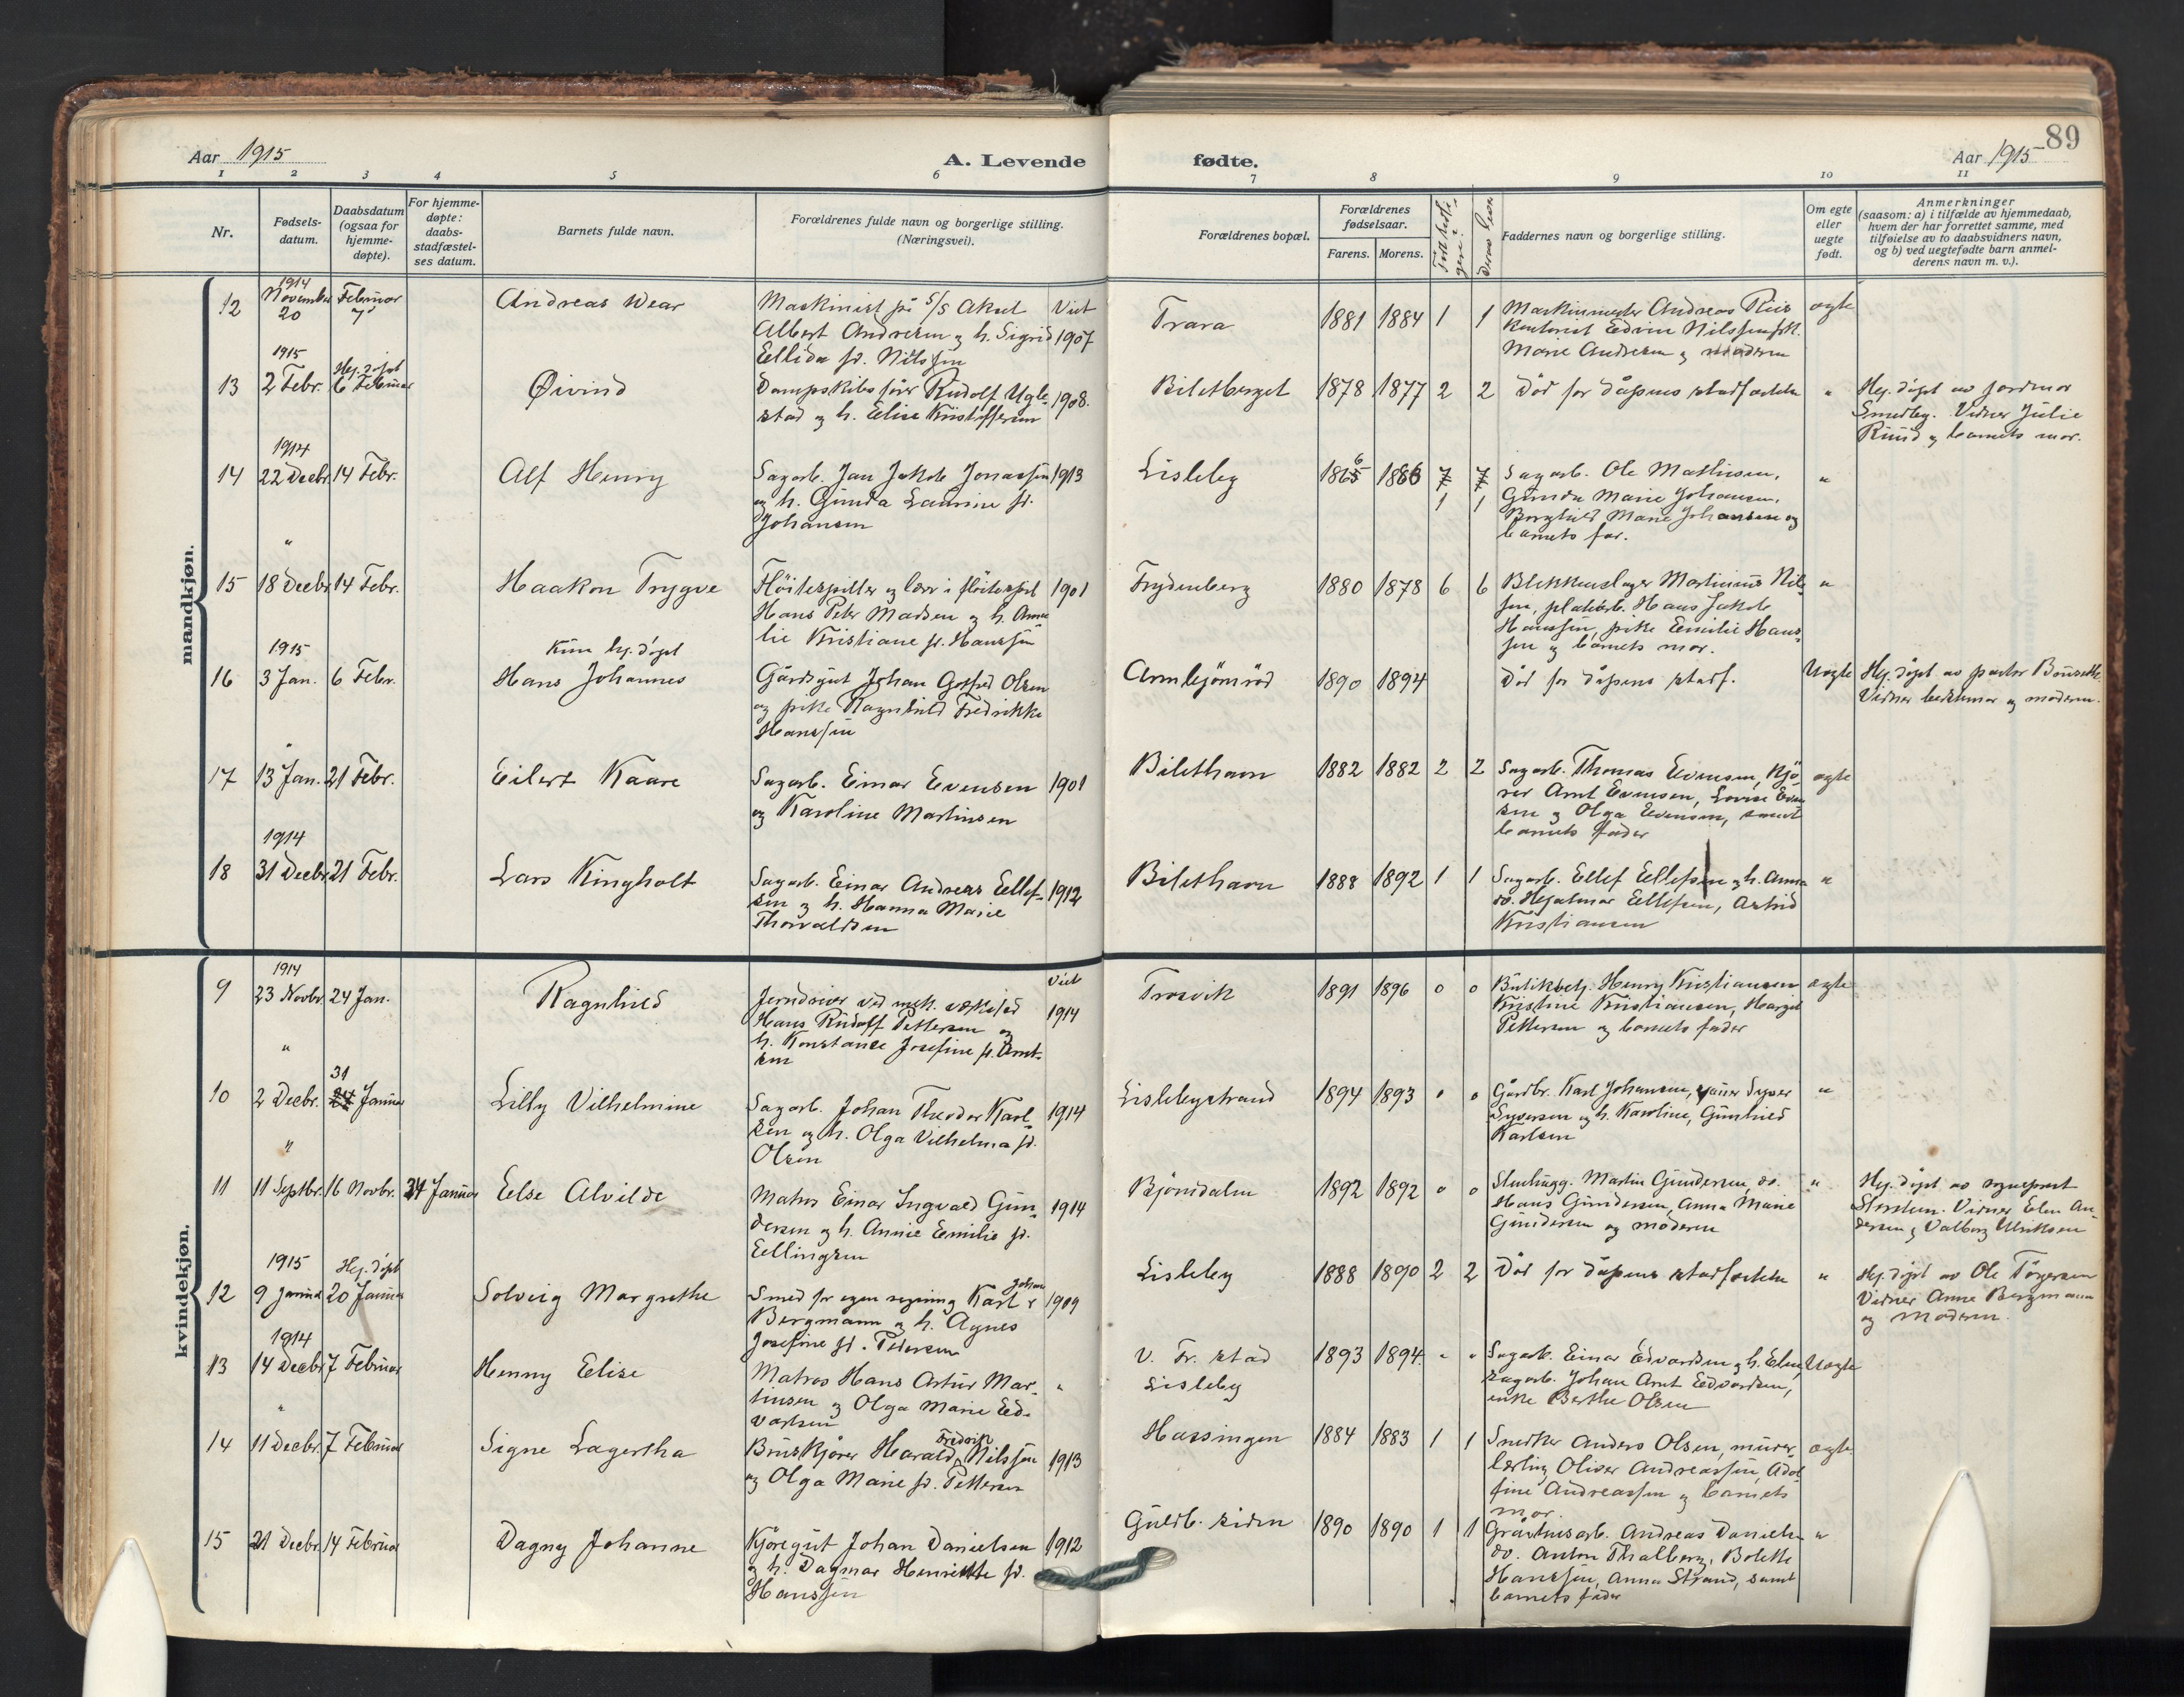 89
Aar 1915
A. Levende
fødte.
Aar 1915
1 2 3 4 5 6 7 8 9 10 11
Nr.
Fødsels-
datum.
Daabsdatum
(ogsaa for
hjemme-
døpte).
For hjemme-
døpte:
daabs-
stadfæstel-
ses datum.
Barnets fulde navn.
Forældrenes fulde navn og borgerlige stilling.
(Næringsvei).
Forældrenes bopæl.
Forældrenes
fødselsaar.
Farens. Morens.
Faddernes navn og borgerlige stilling.
Om egte
eller
uegte
født.
Anmerkninger
(saasom: a) i tilfælde av hjemmedaab,
hvem der har forrettet samme, med
tilføielse av to daabsvidners navn,
og b) ved uegtefødte barn anmel-
derens navn m. v.).
mandkjøn.
12
1914
November
20
Februar
7
Andreas Wear
Maskinist på S/S Akut
Albert Andresen og h. Sigrid
Ellida fd. Nilssen
Viet
1907
Trara
1881 1884 1 1
Maskinmester Andreas Riis
Kontorist Edvin Nilssen
Marie Andresen og moderen
egte
13
1915
2 Febr.
Hj. døpt
6 Februar
Øivind
Dampskibsfører Rudolf Ugle-
stad og h. Elise Kristoffersen
1908.
Biletberget
1878 1877 2 2
Død før dåpens stadfæstelse
"
Hj. døpt av jordmor
Smedby. Vidner Julie
Ruud og barnets mor.
14
1914
22 Decbr. 14 Febr.
Alf Henry
Sagarb. Jan Jakob Jonassen
og h. Gunda Laurine fd.
Johansen
1913
Lisleby
1865 6 1886 7 7
1 1
Sagarb. Ole Mathisen,
Gunda Marie Johansen,
Borghild Marie Johansen og
barnets far.
"
15
"
18 Decbr. 14 Febr.
Haakon Trygve
Fløitespiller og lærer i fløitespil
Hans Peter Madsen og h. Ama-
lie Kristiane fd. Hanssen
1901
Frydenberg
1880 1878 6 6
Blikkenslager Martinius Nils-
sen, platearb. Hans Jakob
Hanssen, pike Emilie Hans-
sen og barnets mor.
"
16
1915
3 Jan. 6 Febr.
Kun hj. døpt
Hans Johannes
Gårdsgut Johan Gotfred Olsen
og pike Ragnhild Fredrikke
Hanssen
Armhjörnröd
1890 1894
Död før dåpens stadf.
Uegte
Hj. døpt av pastor
Vidner bestemor og moderen.
17
"
13 Jan. 21 Febr.
Eilert Kaare
Sagarb. Einar Evensen
og Karoline Martinsen
1901
Bilethavn
1882 1882 2 2
Sagarb. Thomas Evensen, kjø-
rer Arnt Evensen, Lovise Even-
sen og Olga Evensen, samt
barnets fader
egte
18
1914
31 Decbr. 21 Febr.
Lars Kingholt
Sagarb. Einar Andreas Ellef-
sen og h. Hanna Marie
Thorvaldsen
1912
Bilethavn
1888 1892 1 1
Sagarb. Ellef Ellefsen og h. Anna
do. Hjalmar Ellefsen, Astrid
Kristiansen
"
kvindekjøn.
9
1914
23 Novbr. 24 Jan.
Ragnhild
Jerndreier ved mek. verksted
Hans Rudolf Pettersen og
h. Konstanse Josefine fd. Arnt-
sen
Viet
1914
Trosvik
1891 1896 0 0
Butikbetj. Henry Kristiansen
Kristine Kristiansen, Margit
Pettersen og barnets fader
egte
10
"
2 Decbr.
31
24 Januar
Lilly Vilhelmine
Sagarb. Johan Theodor Karl-
sen og h. Olga Vilhelma fd.
Olsen
1914
Lislebystrand
1894 1893 0 0
Gårdbr. Karl Johansen, Syver
Syversen og h. Karoline, Gunhild
Karlsen
"
11
"
11 Septbr. 16 Novbr. 24 Januar
Else Alvilde
Matros Einar Ingvald Gun-
dersen og h. Annie Emilie fd.
Ellingsen
1914
Bjørndalen
1892 1892 0 0
Stenhugg. Martin Gundersen, do.
Hans Gundersen, Anna Marie
Gundersen og moderen
"
Hj. døpt av sogneprest
Vidner Elen An-
dersen og Valborg Ulriksen
12
1915
9 Januar
Hj. døpt
20 Januar
Solveig Margrethe
Smed for egen regning Karl Johan
Bergmann og h. Agnes
Josefine fd. Pedersen
1909
Lisleby
1888 1890 2 2
Död før dåpens stadfæstelse
"
Hj. døpt av Ole Torgersen
Vidner Anne Bergmann
og moderen.
13
1914
14 Decbr. 7 Februar
Henny Elise
Matros Hans Artur Mar-
tinsen og Olga Marie Ed-
vardsen
"
V. Fr. stad
Lisleby
1893 1894 " "
Sagarb. Einar Edvardsen og h. Elen,
sagarb. Johan Arnt Edvardsen,
enke Berthe Olsen
Uegte
14
"
11 Decbr. 7 Februar
Signe Lagertha
Bruskjører Harald Fredrik Nilssen
og Olga Marie fd. Pettersen
1913
Hassingen
1884 1883 1 1
Snedker Anders Olsen, murer-
lærling Oliver Andreassen, Adol-
fine Andreassen og barnets
mor.
egte
15
21 Decbr. 14 Februar
Dagny Johanne
Kjøregut Johan Danielsen
og h. Dagmar Henriette fd.
Hanssen
1912
Guldb. siden
1890 1890 1 1
Andreas Danielsen
do. Anton Thalberg, Bolette
Hanssen, Anna Strand, samt
barnets fader
"